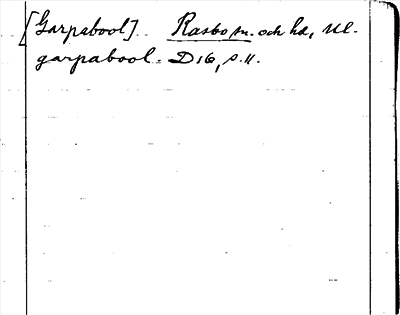 [Garpabool].. Rasbo sn. och hd, Ul.
garpabool. D 16, s. 11.